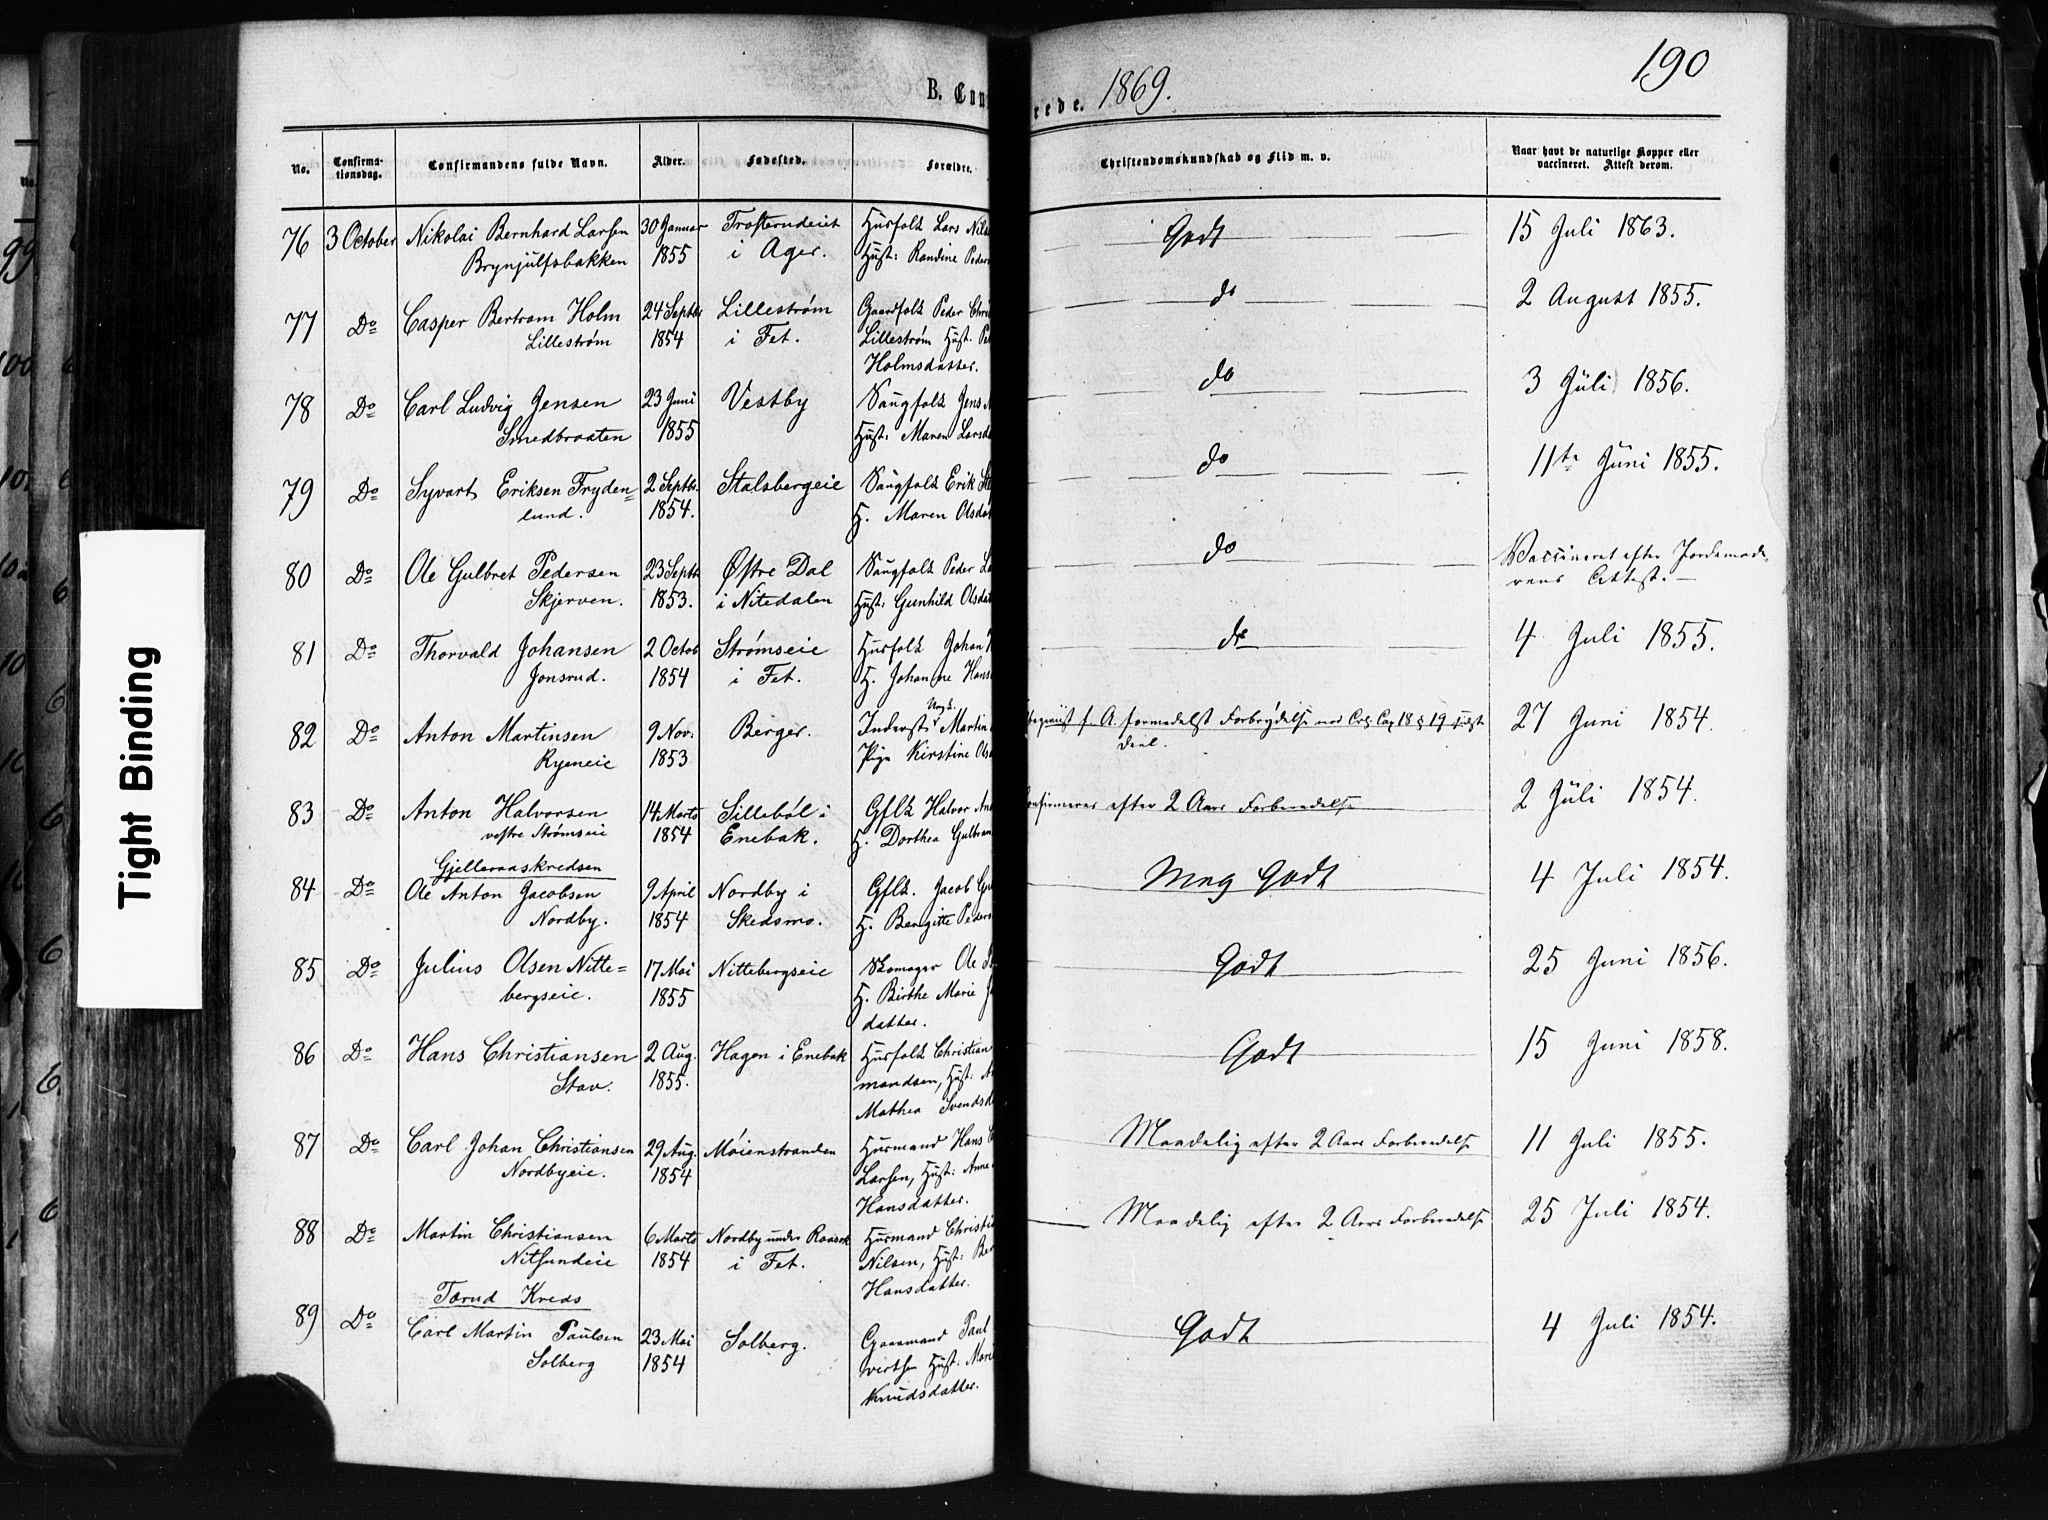 190
B. Con
rede. 1869.
No.
Confirma-
tionsdag.
Confirmandens fulde Navn.
Alder.
Fødested.
Forældre.
Christendomskundskab og Flid m. v.
Naar havt de naturlige Kopper eller
vaccineret. Attest derom.
76 3 October Nikolai Bernhard Larsen 30 Januar i Ager. Husfolk Lars Nils Godt 15 Juli 1863.
Brynjulfsbakken 1855 Hust: Randine Peders
77 Do Casper Bertram Holm 24 Septbr Lillestrøm Gaardfolk Peder do 2 August 1855.
Lillestrøm 1854 i Fet. Lillestrøm Hust.
Holmsdatter.
78 Do Carl Ludvig Jensen 23 Juni Vestby Saugfolk Jens do 3 Juli 1856.
Smedbraaten 1855 Hust: Maren Larsda
79 Do Syvart Eriksen Fryden= 2 Septbr. Stalsbergeie Saugfolk Erik do 11te Juni 1855.
lund. 1854. H. Maren Olsdat
80 Do Ole Gulbret Pedersen 23 Septb Østre Dal Saugfolk Peder do Vaccineret efter Jordemode-
Skjerven. 1853. i Nitedalen Hust: Gunhild Olsdat rens Attest.
81 Do Thorvald Johansen 2 Octob Strømseie Husfolk Johan do 4 Juli 1855.
Jonsrud. 1854 i Fet. H. Johanne Hans
82 Do Anton Martinsen 9 Nov. Berger. Inderst Ungk. Martin f. A. formedelst Forbrydelse mod Crl. Cap 18 § 19 27 Juni 1854.
Ryeneie 1853 Pige Kirstine Ols
83 Do Anton Halvorsen 14 Marts Sillebøl i Gflk Halvor onfirmeres efter 2 Aars Forberedelse 2 Juli 1854.
vestre Strømseie 1854 Enebak. H. Dorthea Gulbran
Gjelleraaskredsen
84 Do Ole Anton Jacobsen 9 April Nordby i Gflk. Jacob Meg Godt 4 Juli 1854.
Nordby. 1854 Skedsmo. H. Bengitte Peders
85 Do Julius Olsen Nitte= 17 Mai Nittebergseie Skomager Ole Godt 25 Juni 1856.
bergseie. 1855 H. Birthe Marie
datter.
86 Do Hans Christiansen 2 Aug. Hagen i Enebak Husfolk Christian Godt 15 Juni 1858.
Stav. 1855. mandsen, Hust:
Mathea Svendsda
87 Do Carl Johan Christiansen 29 Aug. Møienstranden Husmand Hans Maadelig efter 2 Aars Forberedelse 11 Juli 1855.
Nordbyeie. 1854 Larsen, Hust: Anne
Hansdatter.
88 Do Martin Christiansen 6 Marts Nordby under Husmand Christia Maadelig efter 2 Aars Forberedelse 25 Juli 1854.
Nitsundeie 1854 i Fet. Nilsen, Hust: Ber
Hansdatter.
Tærud Kreds
89 Do Carl Martin Paulsen 23 Mai Solberg. Gaarmand Paul Godt 4 Juli 1854.
Solberg 1854 Hust: Mari
Knudsdatter.
Tight Binding